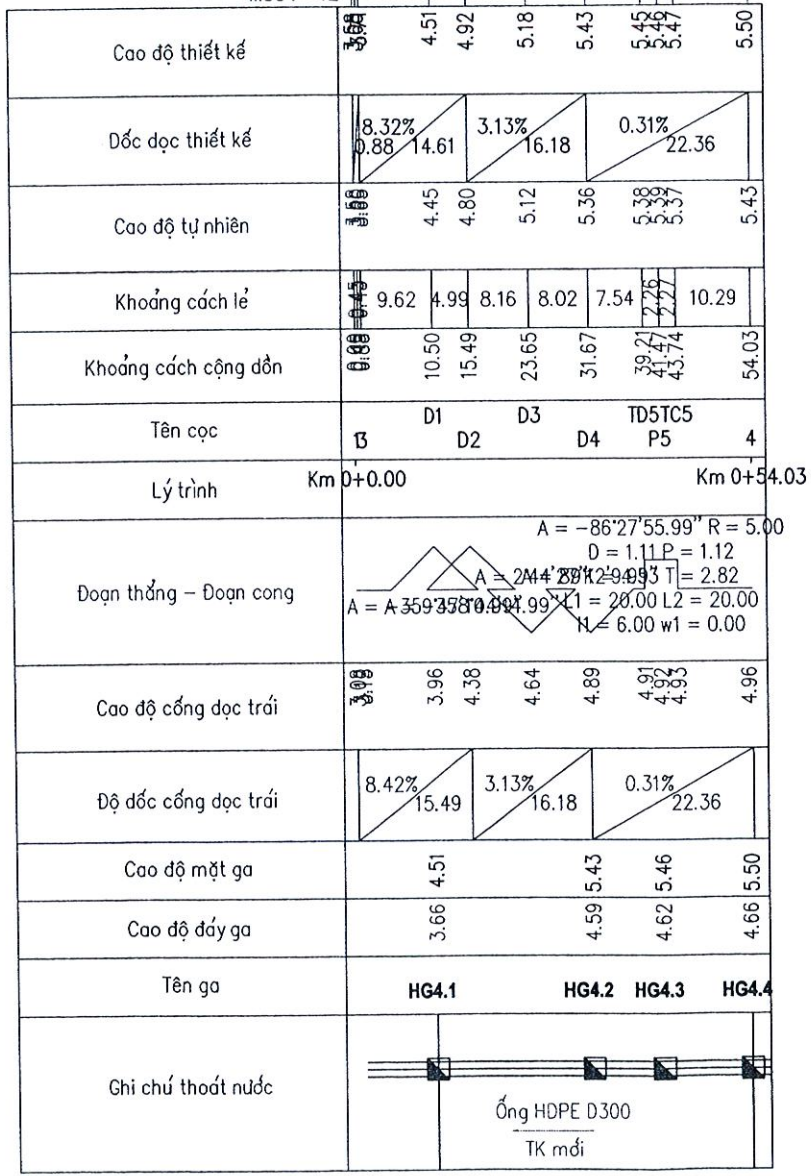 Cao độ thiết kế
4.51 4.92 5.18 5.43 5.45 5.46 5.47 5.50
Dốc dọc thiết kế
8.32% 3.13% 0.31%
0.88 14.61 16.18 22.36
Cao độ tự nhiên
4.45 4.80 5.12 5.36 5.38 5.39 5.37 5.43
Khoảng cách lẻ
0.43 9.62 4.99 8.16 8.02 7.54 2.26 2.27 10.29
Khoảng cách cộng dồn
10.50 15.49 23.65 31.67 39.21 41.47 43.74 54.03
Tên cọc
D1 D3 TD5TC5
D2 D4 P5 4
Lý trình
Km 0+0.00 Km 0+54.03
Đoạn thẳng – Đoạn cong
A = –86°27'55.99" R = 5.00
D = 1.11 P = 1.12
T = 2.82
L1 = 20.00 L2 = 20.00
= 6.00 w1 = 0.00
Cao độ cống dọc trái
3.96 4.38 4.64 4.89 4.91 4.92 4.93 4.96
Độ dốc cống dọc trái
8.42% 3.13% 0.31%
15.49 16.18 22.36
Cao độ mặt ga
4.51 5.43 5.46 5.50
Cao độ đáy ga
3.66 4.59 4.62 4.66
Tên ga
HG4.1 HG4.2 HG4.3 HG4.4
Ghi chú thoát nước
Ống HDPE D300
TK mới